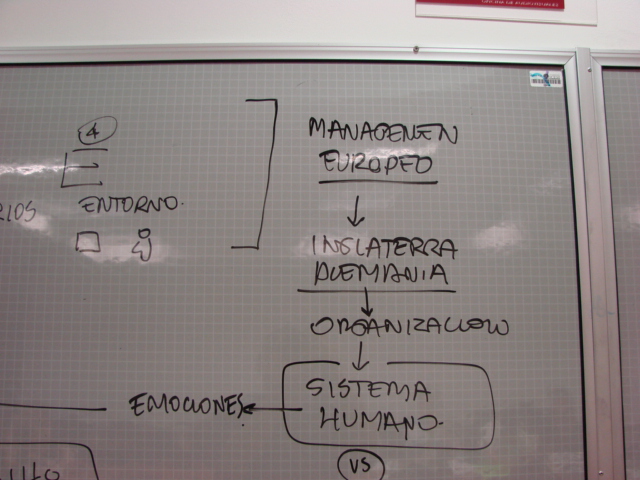 4
MANAGEMEN
EUROPEO
RIOS ENTORNO.
INGLATERRA
ALEMANIA
ORGANIZACION
SISTEMA
HUMANO.
EMOCIONES.
VS